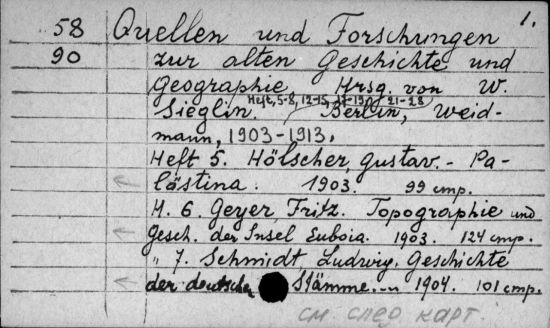 1.
58 Quellen und Forschungen
90 zur alten Geschichte und
Geographie. Hrsg. von W.
Heft, 5-8, 12-15, 17-19, 21-28
Sieglin. Berlin, Weid-
mann, 1903-1913.
Heft 5. Hölscher, Gustav. - Pa-
lästina. 1903. 99 стр.
H. 6. Geyer, Fritz. Topographie und
Gesch. der Insel Euboia. 1903. 124 стр.
" 7. Schmidt Ludwig. Geschichte
der deutschen Stämme. 1904. 101 стр.
см. след карт.